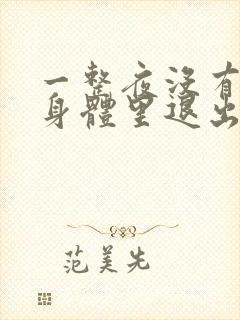 一整夜沒有
身體里退出
范美先